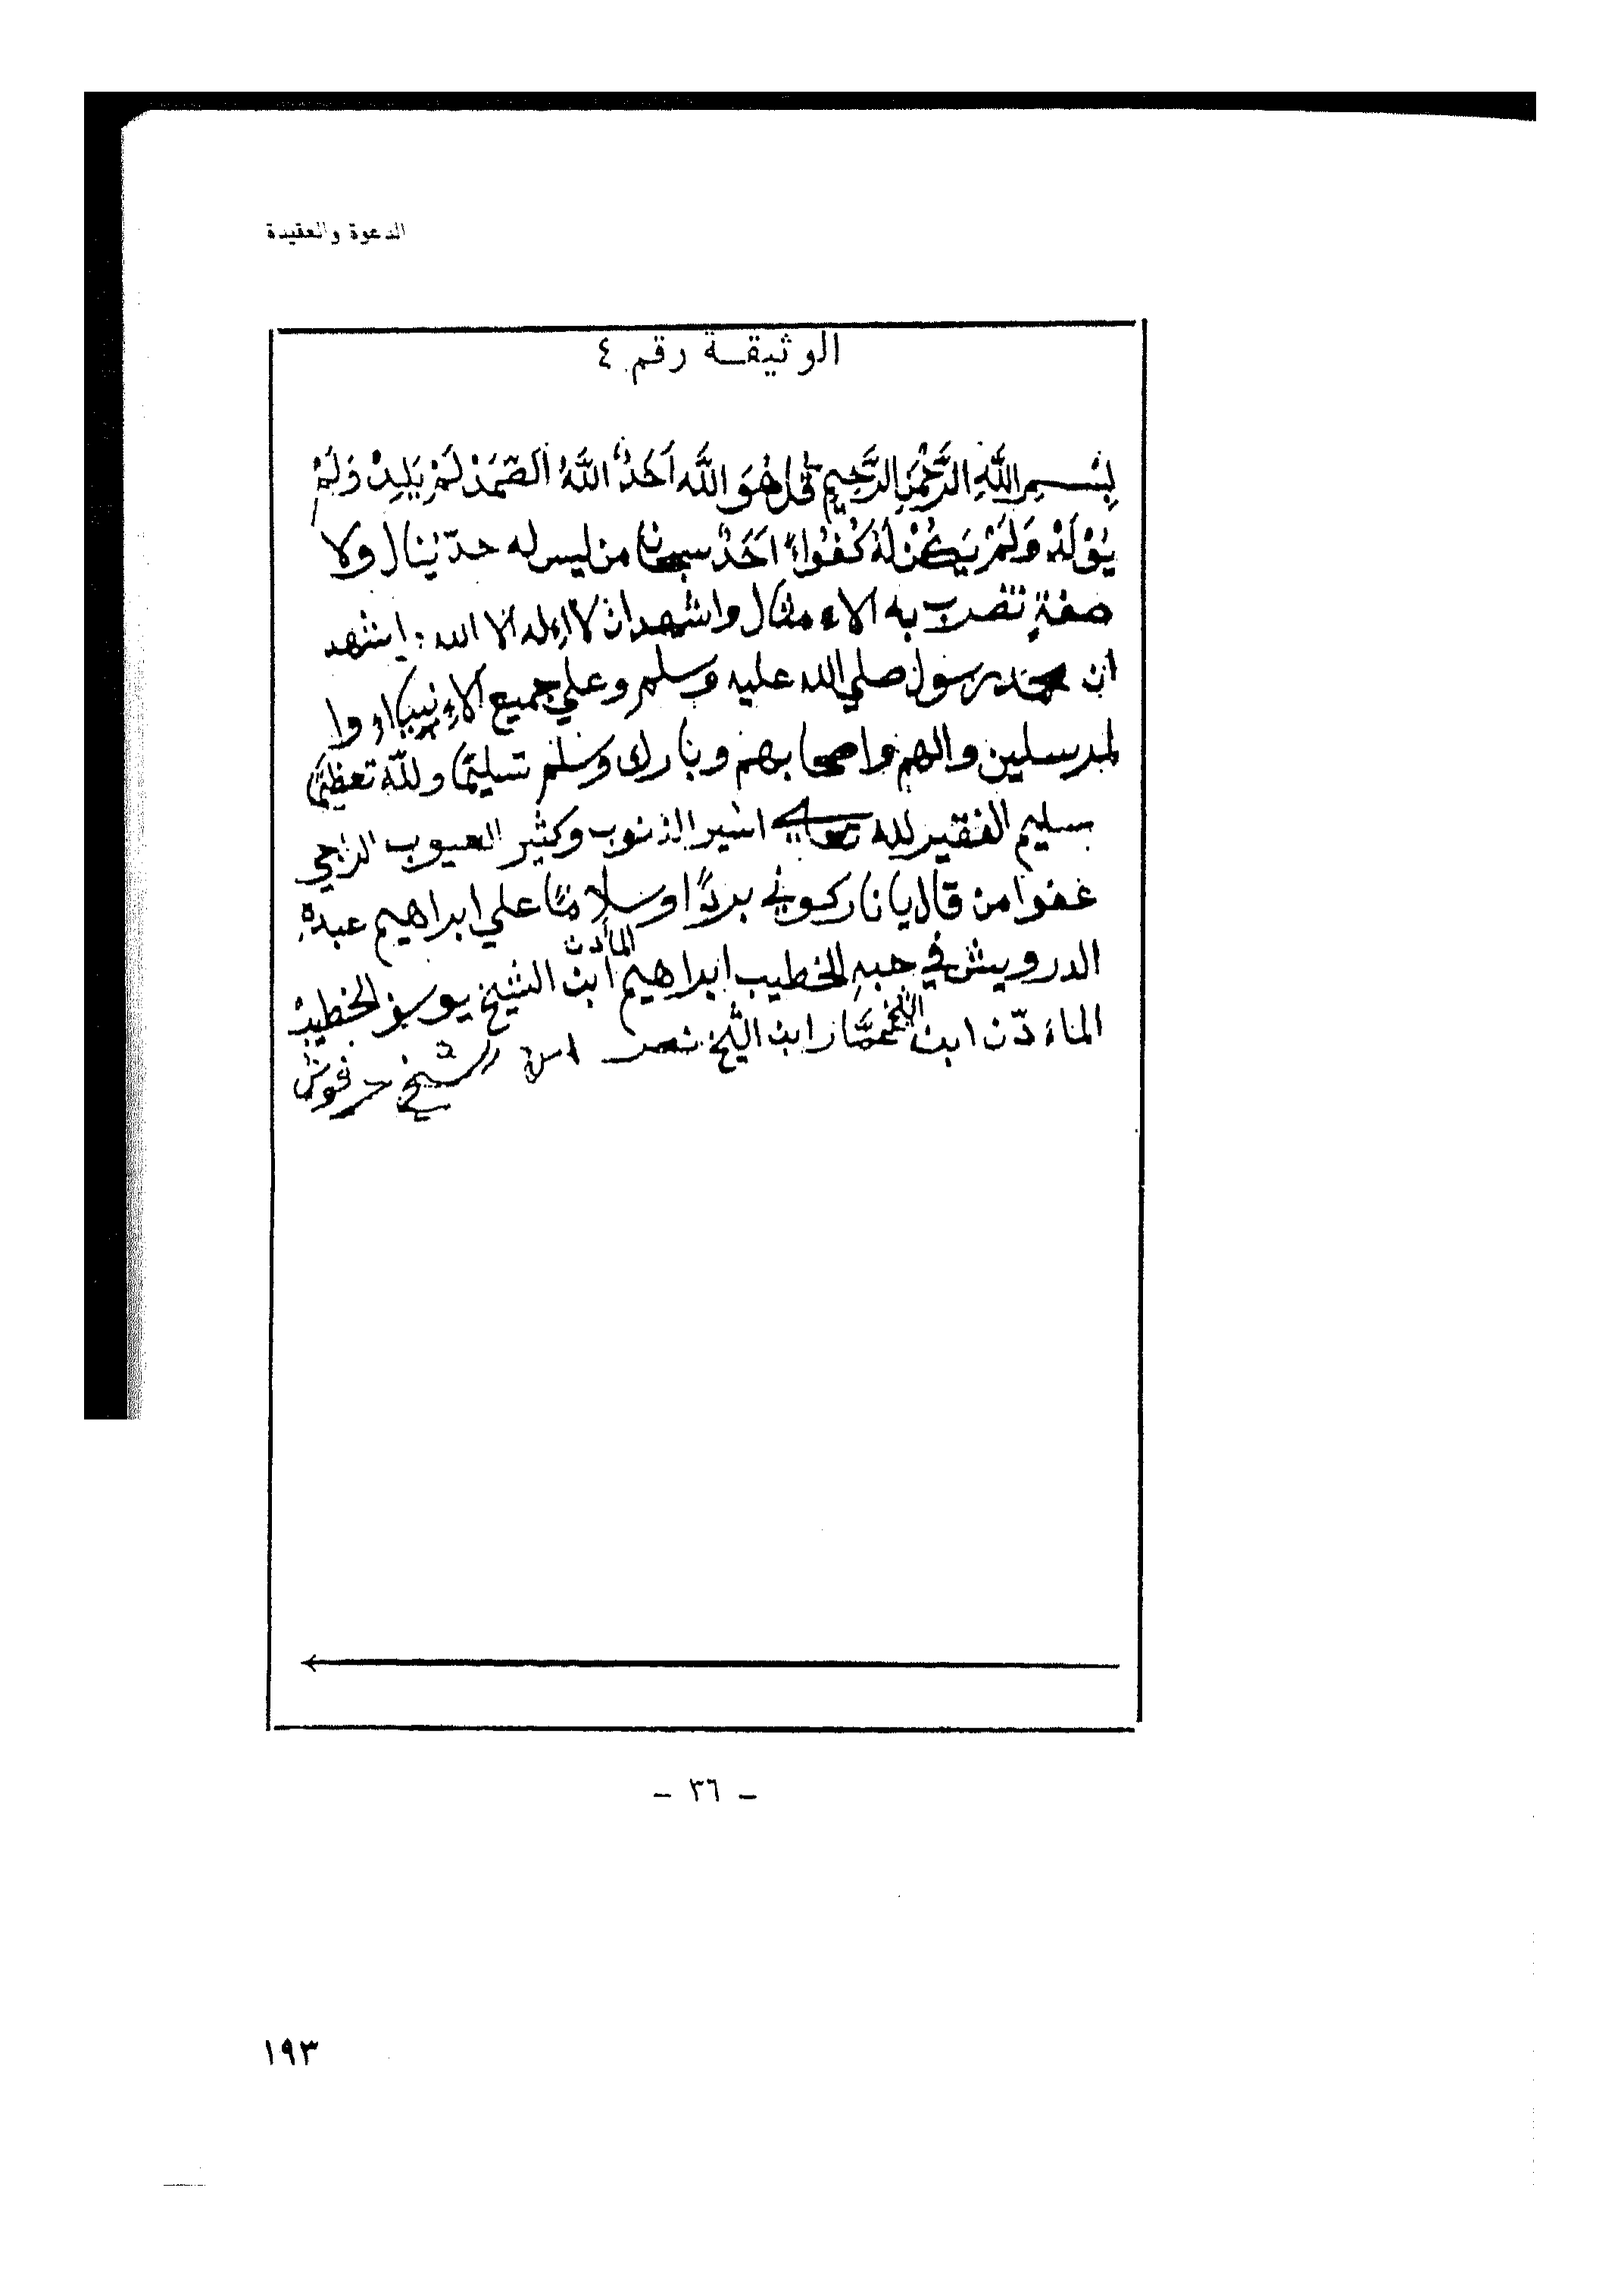 الدعوة والعقيدة
الوثيقة رقم ٤
بِسْمِ اللَّهِ الرَّحْمٰنِ الرَّحِيمِ قُلْ هُوَ اللَّهُ اَحَدٌ اللَّهُ الصَّمَدْ لَمْ يَلِدْ وَلَمْ
يُوْلَدْ وَلَمْ يَكُنْ لَهُ كُفُوًاءً اَحَدٌ سبحان من ليس له حدّ ينال ولا
صفةٍ تضرب به الاءمثال واشهد ان لا إله الا الله : اشهد
ان محمد رسول صلي الله عليه وسلم وعلي جميع الاءنبياء وا
لمرسلين والهم واصحابهم وبارك وسلم تسليمًا ولله تعظيمًا
سليم الفقير لله تعالى اسير الذنوب وكثير العيوب الراجي
غفوا من قال يا نار كوني بردًا وسلامًا علي ابراهيم عبده
الدرويش في حبه الخطيب ابراهيم المأدن ابن الشيخ يوسف الخطيب
الماءدّن ابن الشيخ نصار ابن الشيخ نصر ابن الشيخ حرفوش
- ٣٦ -
١٩٣